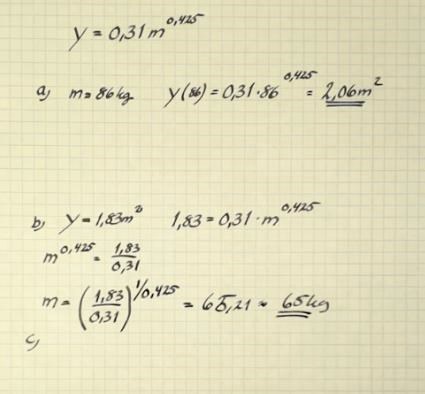 y = 0,31 m^0,425
a) m = 86 kg y(86) = 0,31 · 86^0,425 = 2,06 m²
b) y = 1,83 m² 1,83 = 0,31 · m^0,425
m^0,425 = 1,83/0,31
m = (1,83/0,31)^1/0,425 = 65,21 ≈ 65 kg
c)